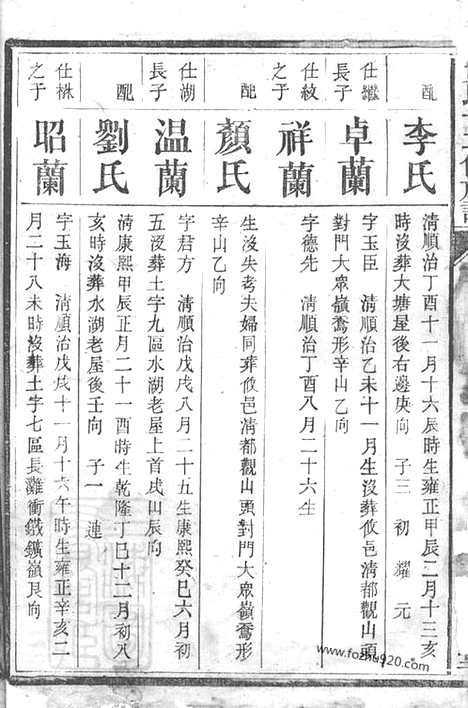 配
李氏
清順治丁酉十一月十六辰時生雍正甲辰二月十三亥
時沒葬大塘屋後右邊庚向 子三 初 耀 元
仕繼
長子
卓蘭
字玉臣 清順治乙未十一月生沒葬攸邑清都觀山頭
對門大眾嶺鶱形辛山乙向
仕紋
之子
祥蘭
字德先 清順治丁酉八月二十六生
配
顏氏
生沒失考夫婦同葬攸邑清都觀山頭對門大眾嶺鶱形
辛山乙向
仕湖
長子
温蘭
字君方 清順治戊戌八月二十五生康熙癸巳六月初
五沒葬土字九區水湖老屋上首戌山辰向
配
劉氏
清康熙甲辰正月二十一酉時生乾隆丁巳十二月初八
亥時沒葬水湖老屋後壬向 子一 連
仕㮤
之子
昭蘭
字玉海 清順治戊戌十一月十六午時生雍正辛亥二
月二十八未時沒葬土字七區長灘衝鐵鑛嶺艮向
www.fozhu920.com